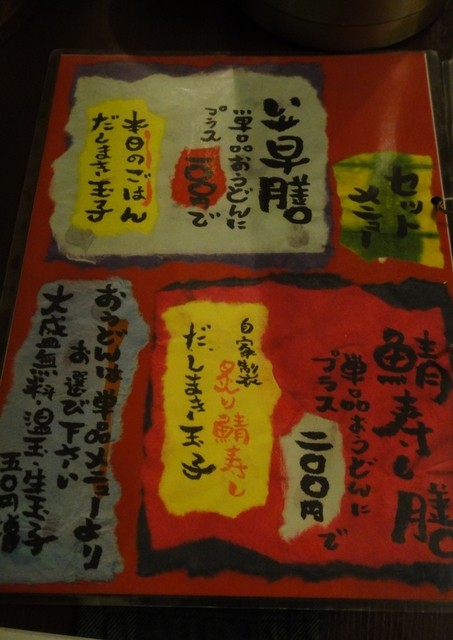 セット
メニュー
いせ早膳
単品おうどんに
プラス
一〇〇円で
本日のごはん
だしまき玉子
鯖寿し膳
単品おうどんに
プラス
二〇〇円
で
自家製
炙り鯖寿し
だしまき玉子
おうどんは単品メニューより
お選び下さい
大盛無料 温玉・生玉子
五〇円増